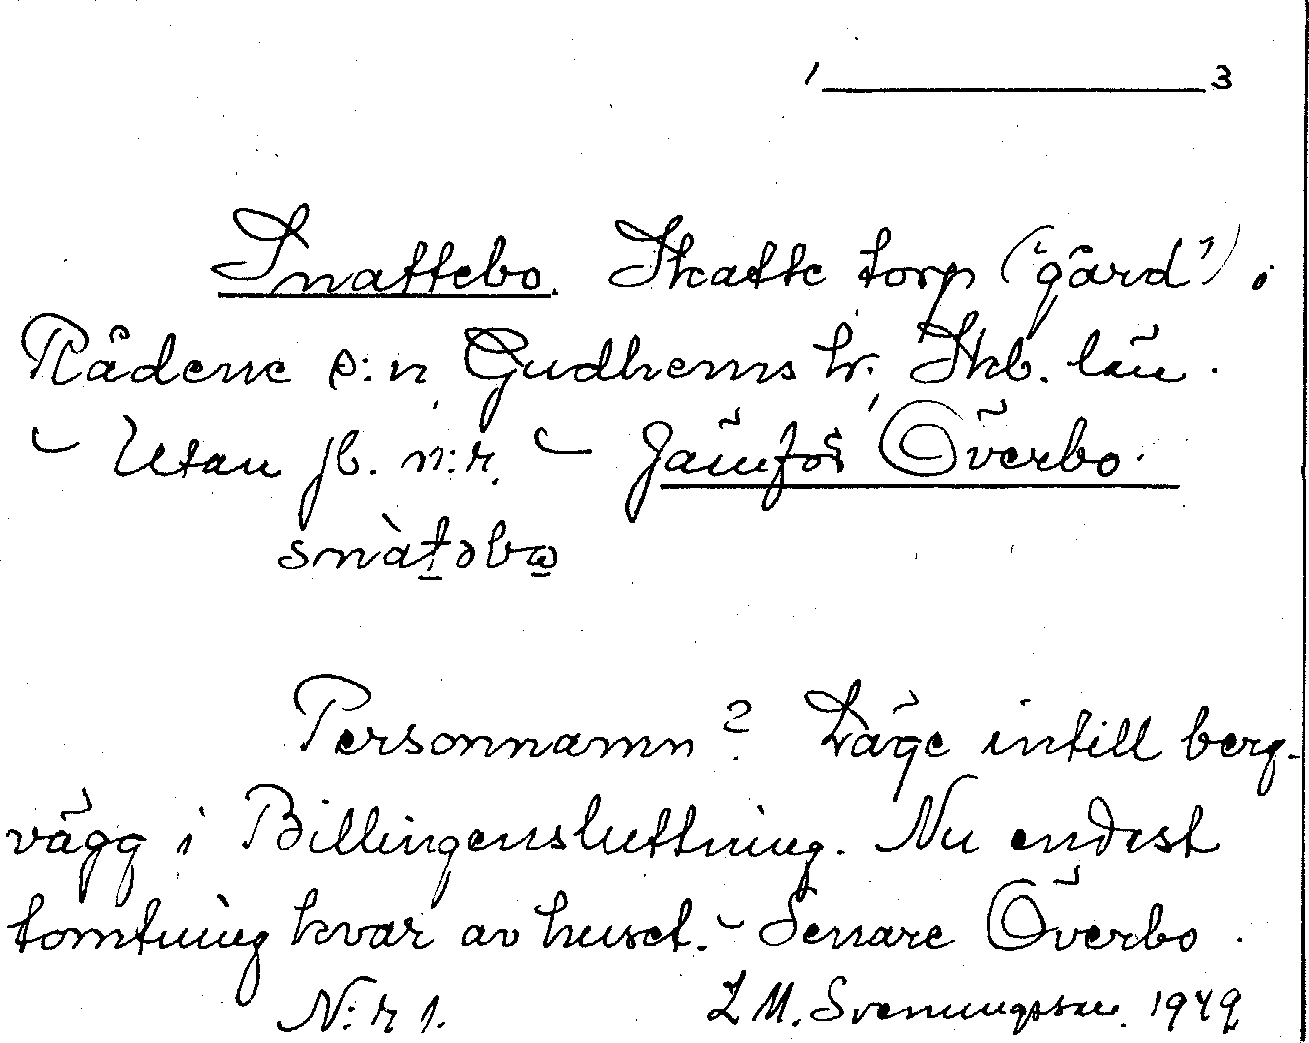 1 3
Snattebo. Skatte torp ("gård") i
Rådene s:n Gudhems hr. Skb. län.
- Utan jb. n:r. - Jämför Överbo.
snàt̠əbω̠
Personnamn? Läge intill berg-
vägg i Billingensluttning. Nu endast
tomtning kvar av huset. - Senare Överbo.
N:r 1. L M. Svenungsson. 1949